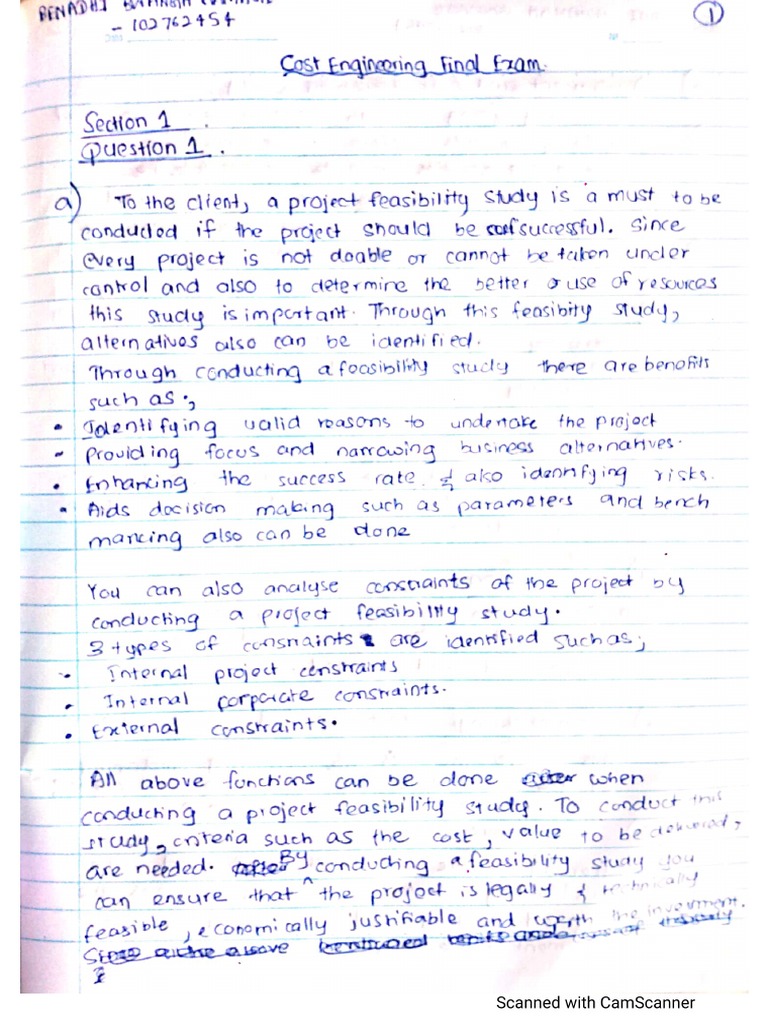 BENADHI
- 102762454
1
Cost Engineering Final Exam.
Section 1 .
Question 1 .
a) To the client, a project feasibility study is a must to be
conducted if the project should be successful. Since
every project is not doable or cannot be taken under
control and also to determine the better use of resources
this study is important. Through this feasibity study,
alternatives also can be identified.
Through conducting a feasibility study there are benefits
such as;,
• Identifying valid reasons to undertake the project
- Providing focus and narrowing business alternatives.
• Enhancing the success rate. & also identifying risks.
• Aids decision making such as parameters and bench
marcing also can be done
You can also analyse constraints of the project by
conducting a project feasibility study.
3 types of constraints are identified such as;
• Internal project constraints
• Internal corporate constraints.
• External constraints.
All above functions can be done when
conducting a project feasibility study. To conduct this
study, criteria such as the cost, value to be delivered,
are needed. By conducting a feasibility study you
can ensure that the project is legally & technically
feasible, economically justifiable and worth the investment.
Scanned with CamScanner